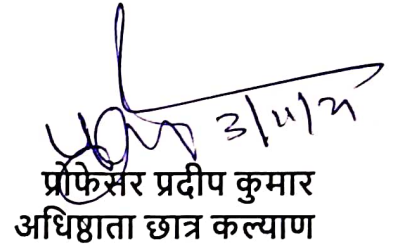 3/11/21
प्रोफेसर प्रदीप कुमार
अधिष्ठाता छात्र कल्याण